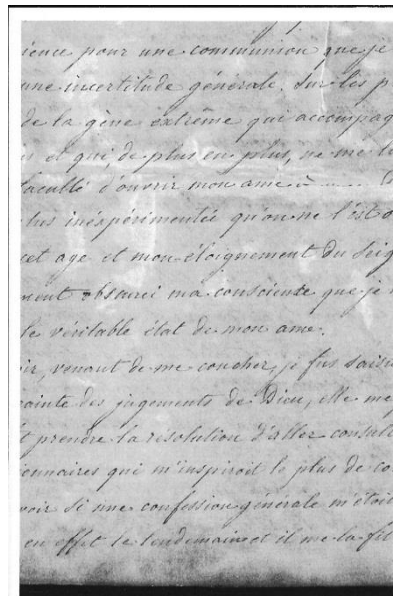 ience pour une communion que je
une incertitude générale. Sur les p
de la gêne extrême qui accompag
is et qui, de plus en plus, ne me l
faculté d'ouvrir mon ame à ...
lus inéxpérimentée qu'on ne l'est o
cet age et mon éloignement du Seig
ment obscurci ma conscience que je
le véritable état de mon ame.
ir, venant de me coucher, je fus saisi
rainte des jugements de Dieu, elle me
t prendre la résolution d'aller consult
ionnaires qui m'inspiroit le plus de co
voir si une confession générale m'étoit
en effet le lendemain et il me la fit